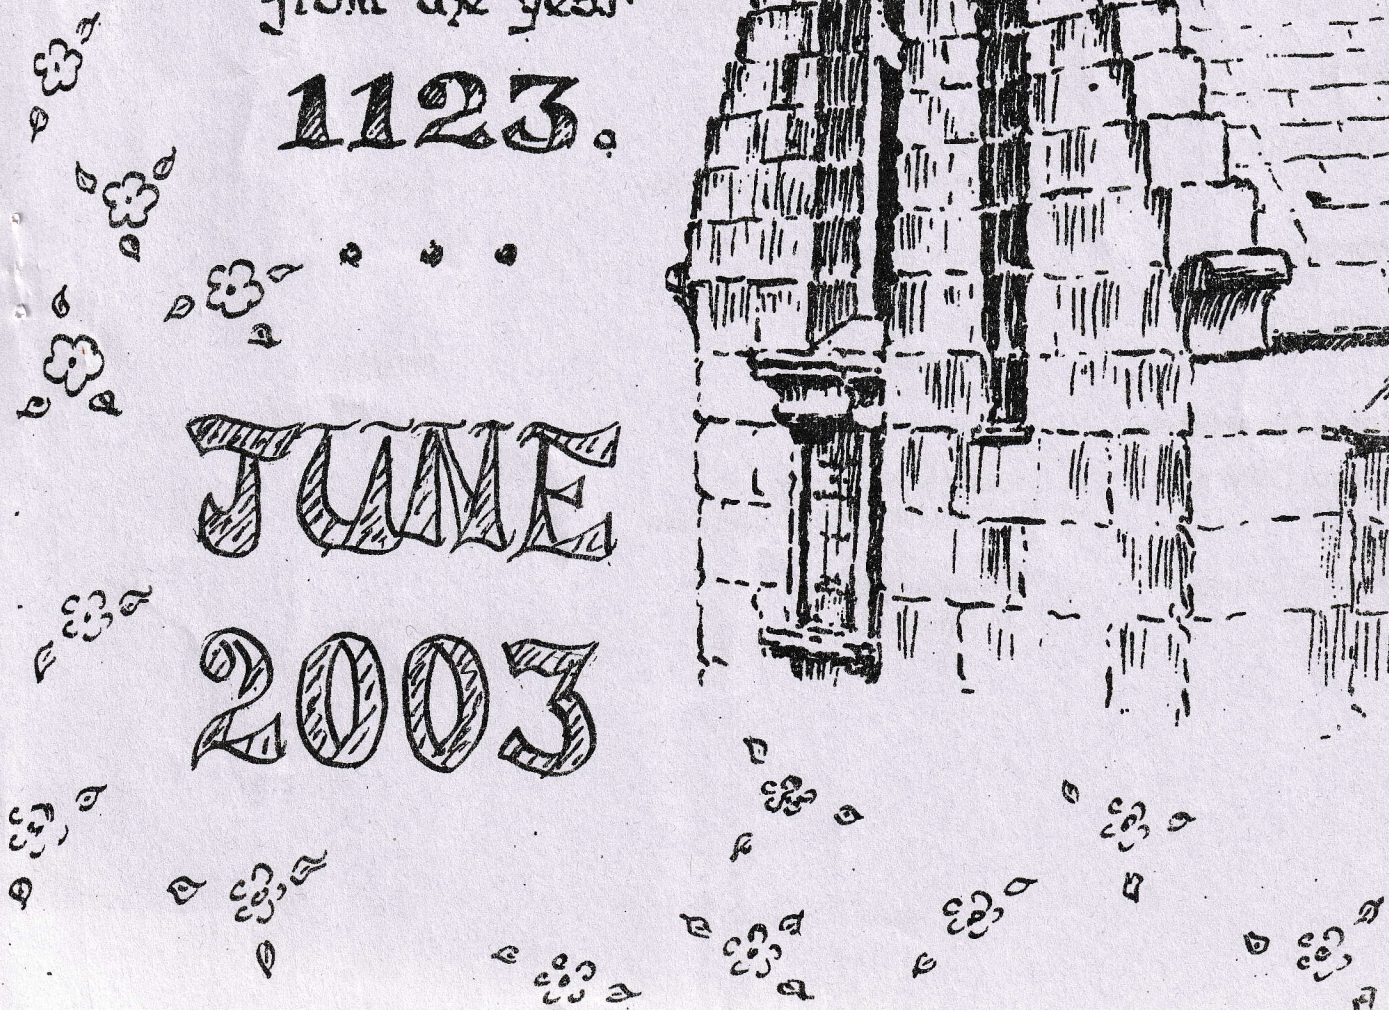 from the year
1123.
JUNE
2003